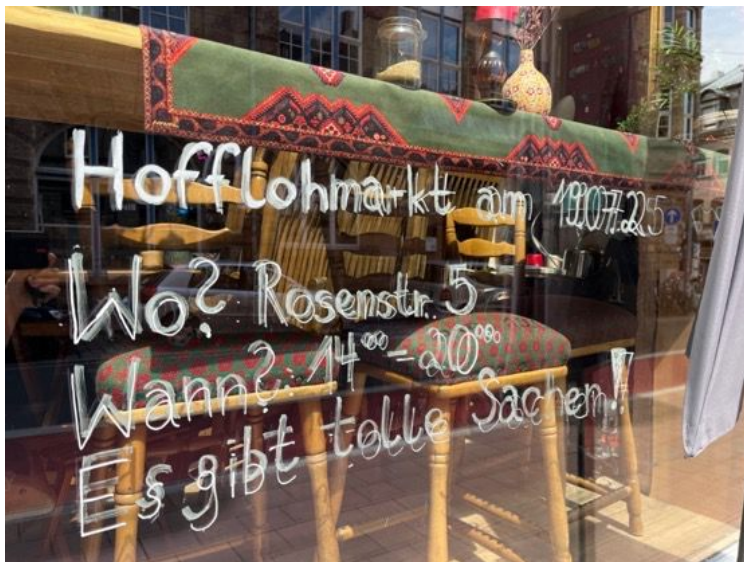 Hofflohmarkt am 19.07.25
Wo? Rosenstr. 5
Wann?: 14°°-20°°
Es gibt tolle Sachen!